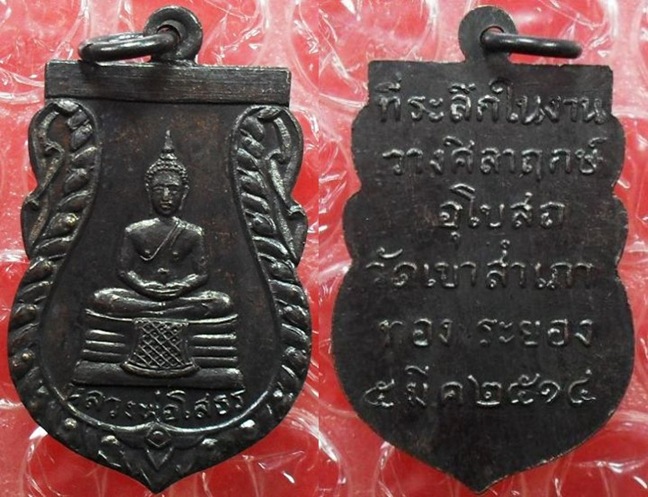 หลวงพ่อโสธร
ที่ระลึกในงาน
วางศิลาฤกษ์
อุโบสถ
วัดเขาสำเภา
ทอง ระยอง
๕ มี ค ๒๕๑๔